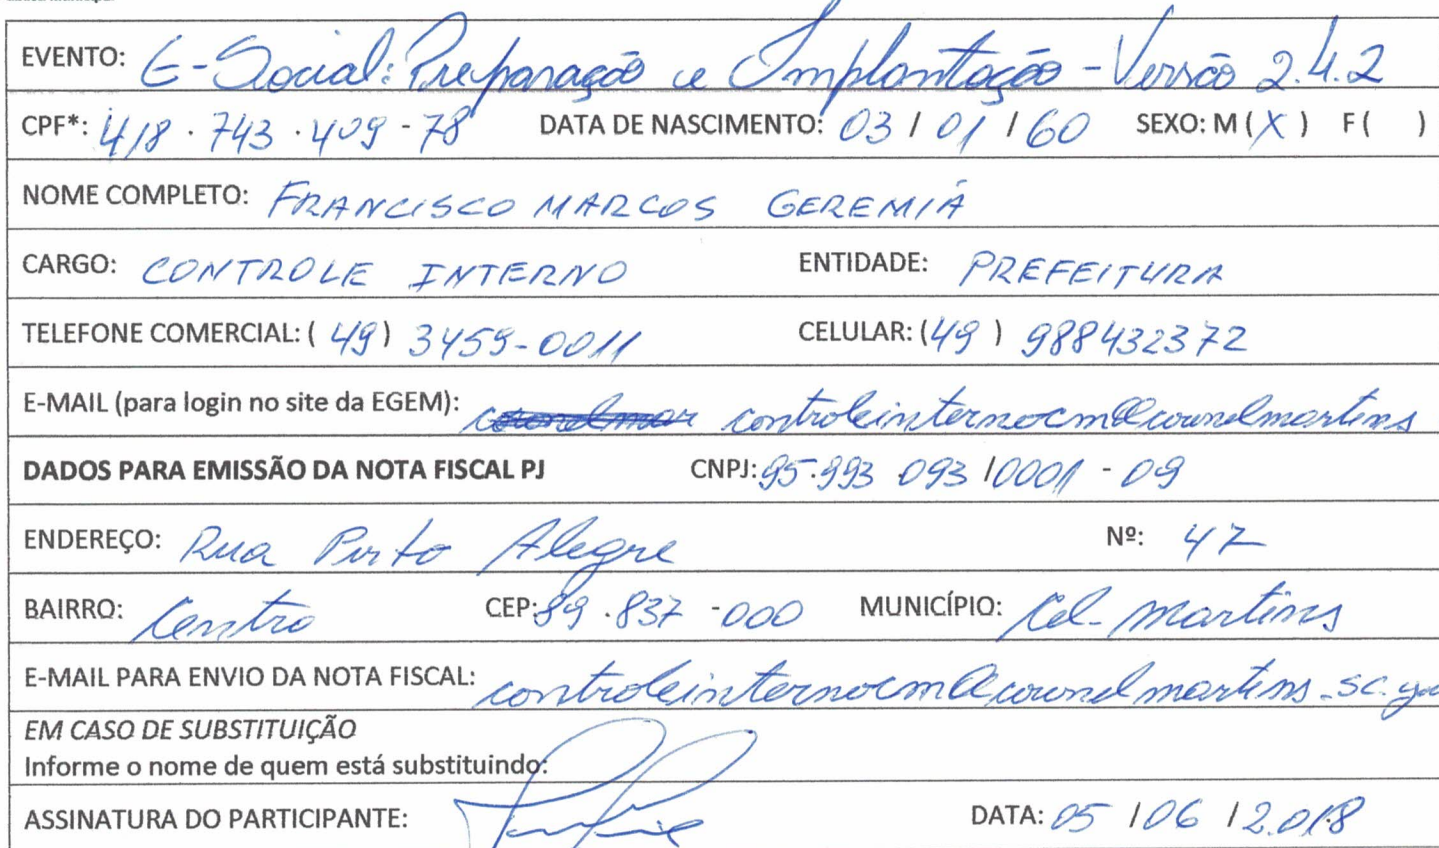 EVENTO: E-Social: Preparação e Implantação - Versão 2.4.2
CPF*: 418.743.409-78 DATA DE NASCIMENTO: 03/01/60 SEXO: M (X) F ( )
NOME COMPLETO: FRANCISCO MARCOS GEREMIÁ
CARGO: CONTROLE INTERNO ENTIDADE: PREFEITURA
TELEFONE COMERCIAL: (49) 3459-0011 CELULAR: (49) 988432372
E-MAIL (para login no site da EGEM): coronelmar controleinternocm@coronelmartins
DADOS PARA EMISSÃO DA NOTA FISCAL PJ CNPJ: 95.993 093/0001-09
ENDEREÇO: Rua Porto Alegre Nº: 47
BAIRRO: Centro CEP: 89.837-000 MUNICÍPIO: Cel. Martins
E-MAIL PARA ENVIO DA NOTA FISCAL: controleinternocm@coronelmartins.sc.gov
EM CASO DE SUBSTITUIÇÃO
Informe o nome de quem está substituindo:
ASSINATURA DO PARTICIPANTE: DATA: 05/06/2.018